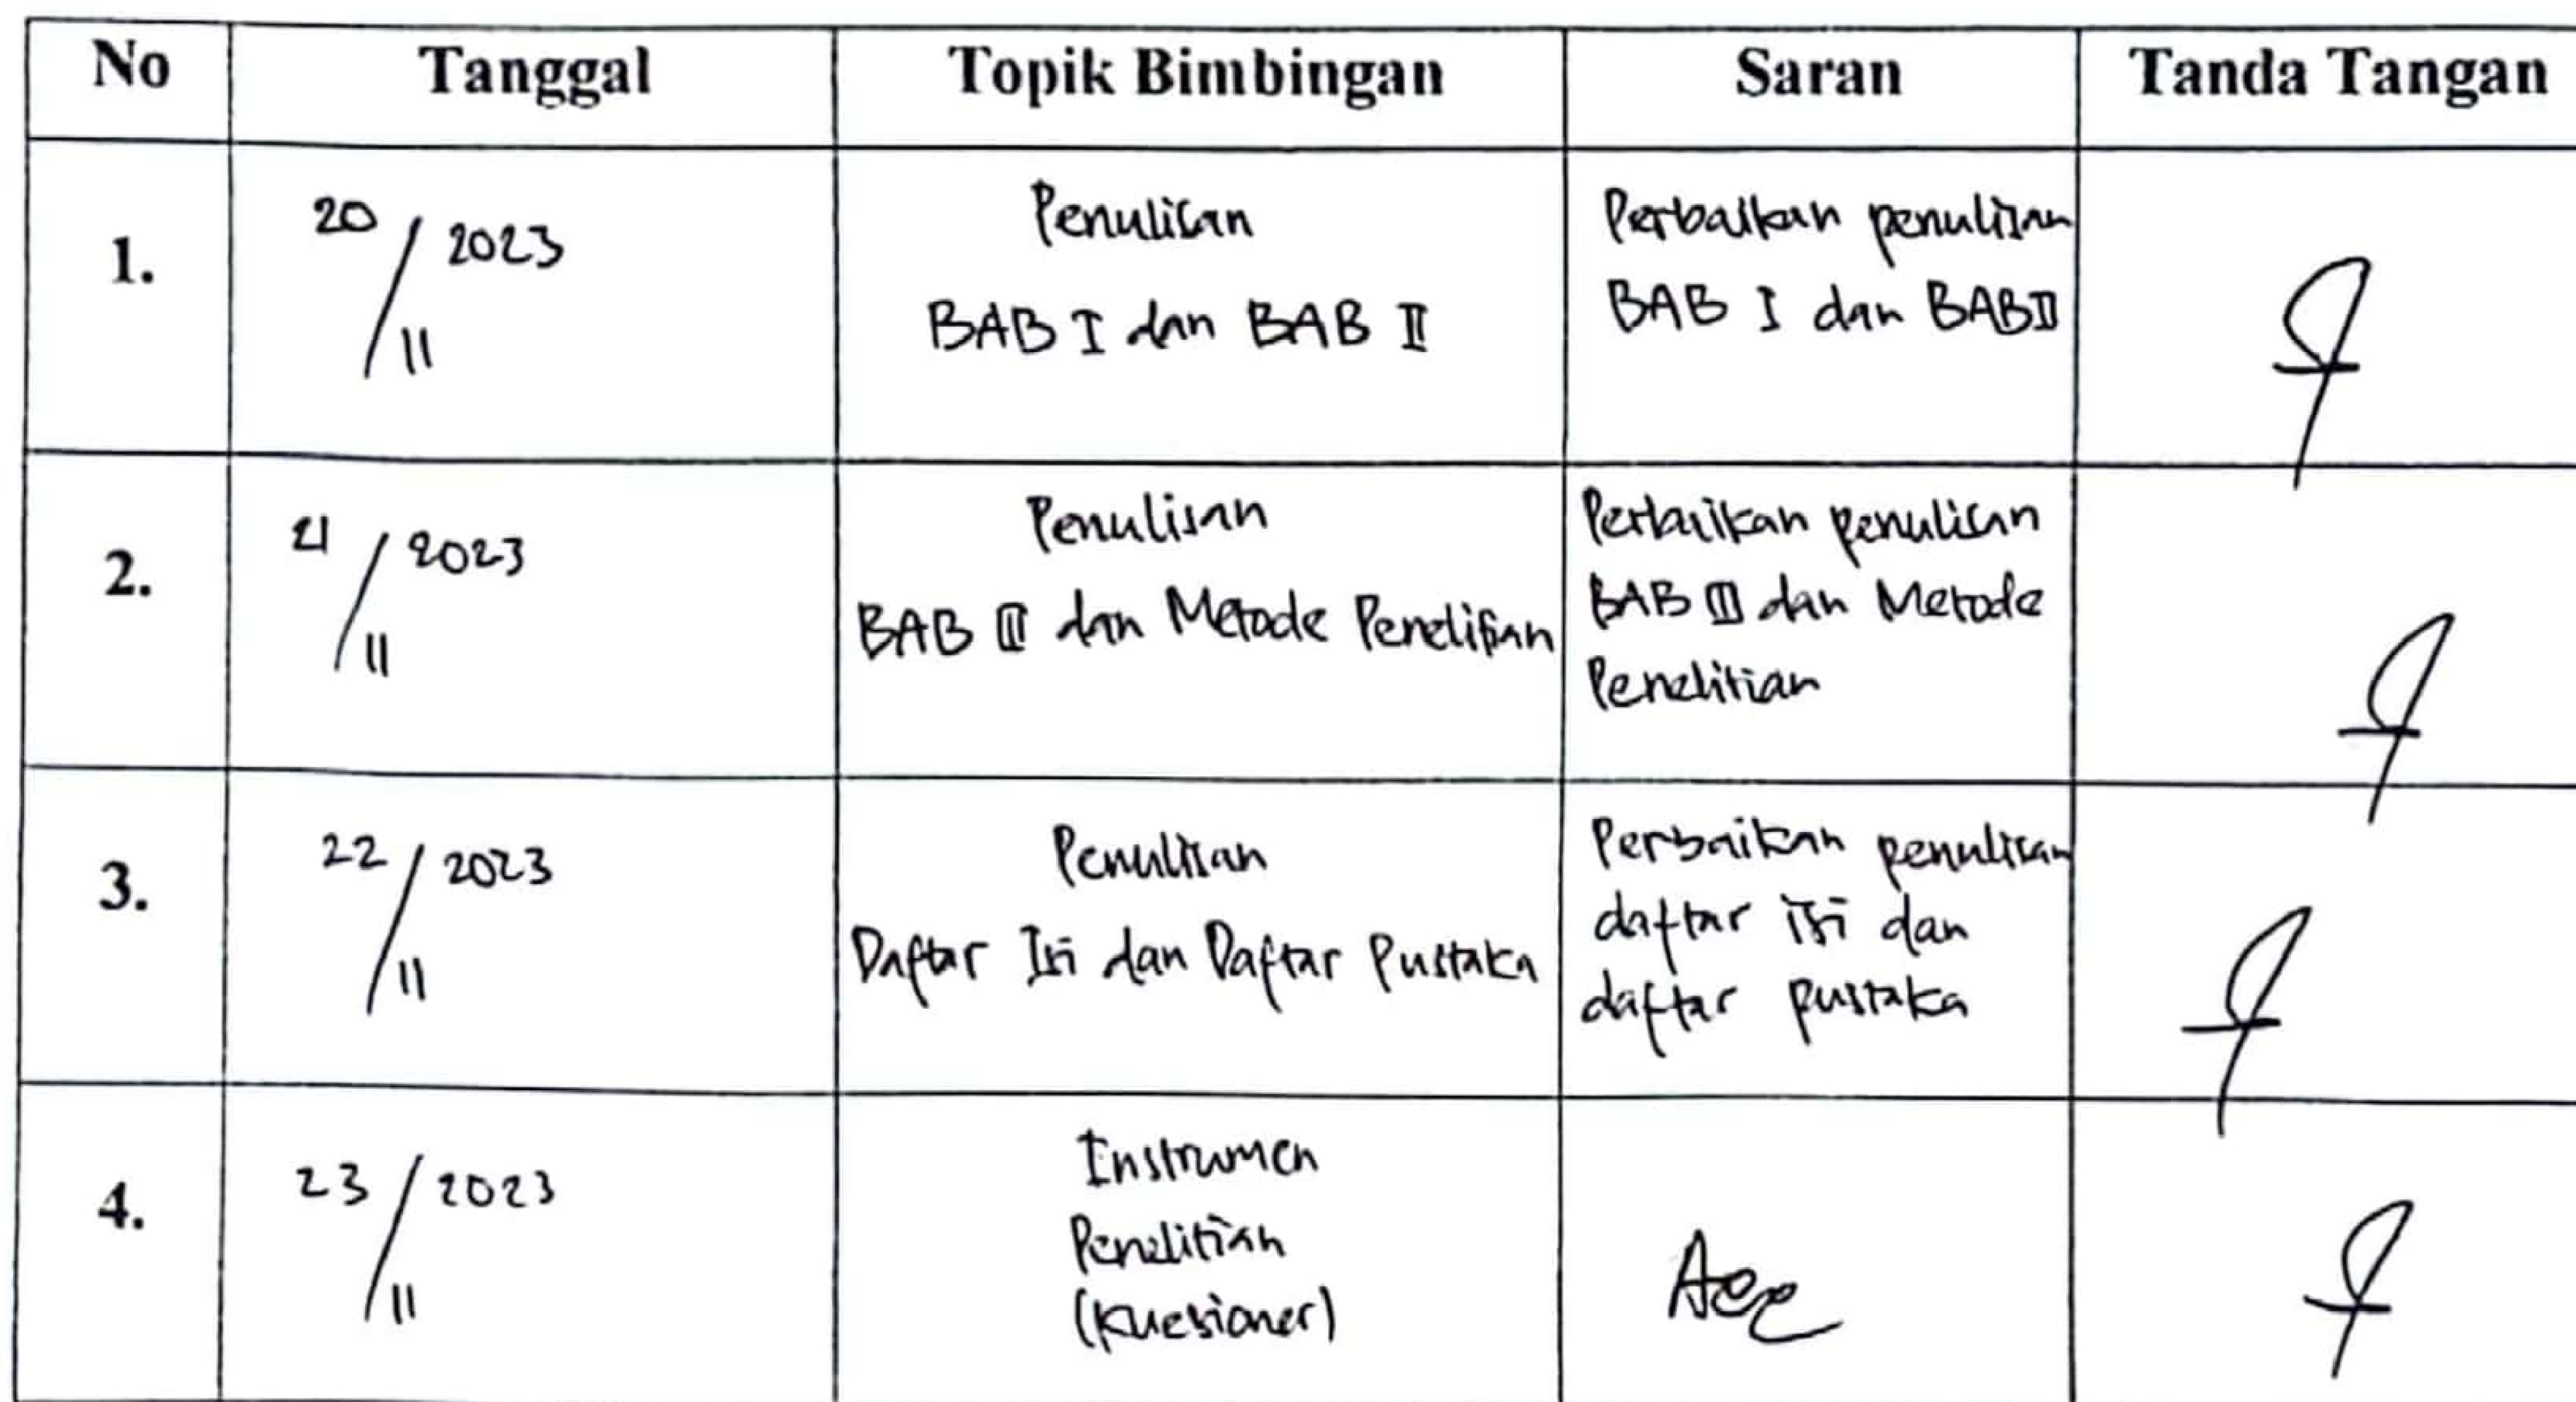 No Tanggal Topik Bimbingan Saran Tanda Tangan
1.
20/11 2023
Penulisan
BAB I dan BAB II
Perbaikan penulisan
BAB I dan BAB II
2.
21/11 2023
Penulisan
BAB III dan Metode Penelitian
Perbaikan penulisan
BAB III dan Metode
Penelitian
3.
22/11 2023
Penulisan
Daftar Isi dan Daftar Pustaka
Perbaikan penulisan
daftar isi dan
daftar pustaka
4.
23/11 2023
Instrumen
Penelitian
(Kuesioner)
Acc